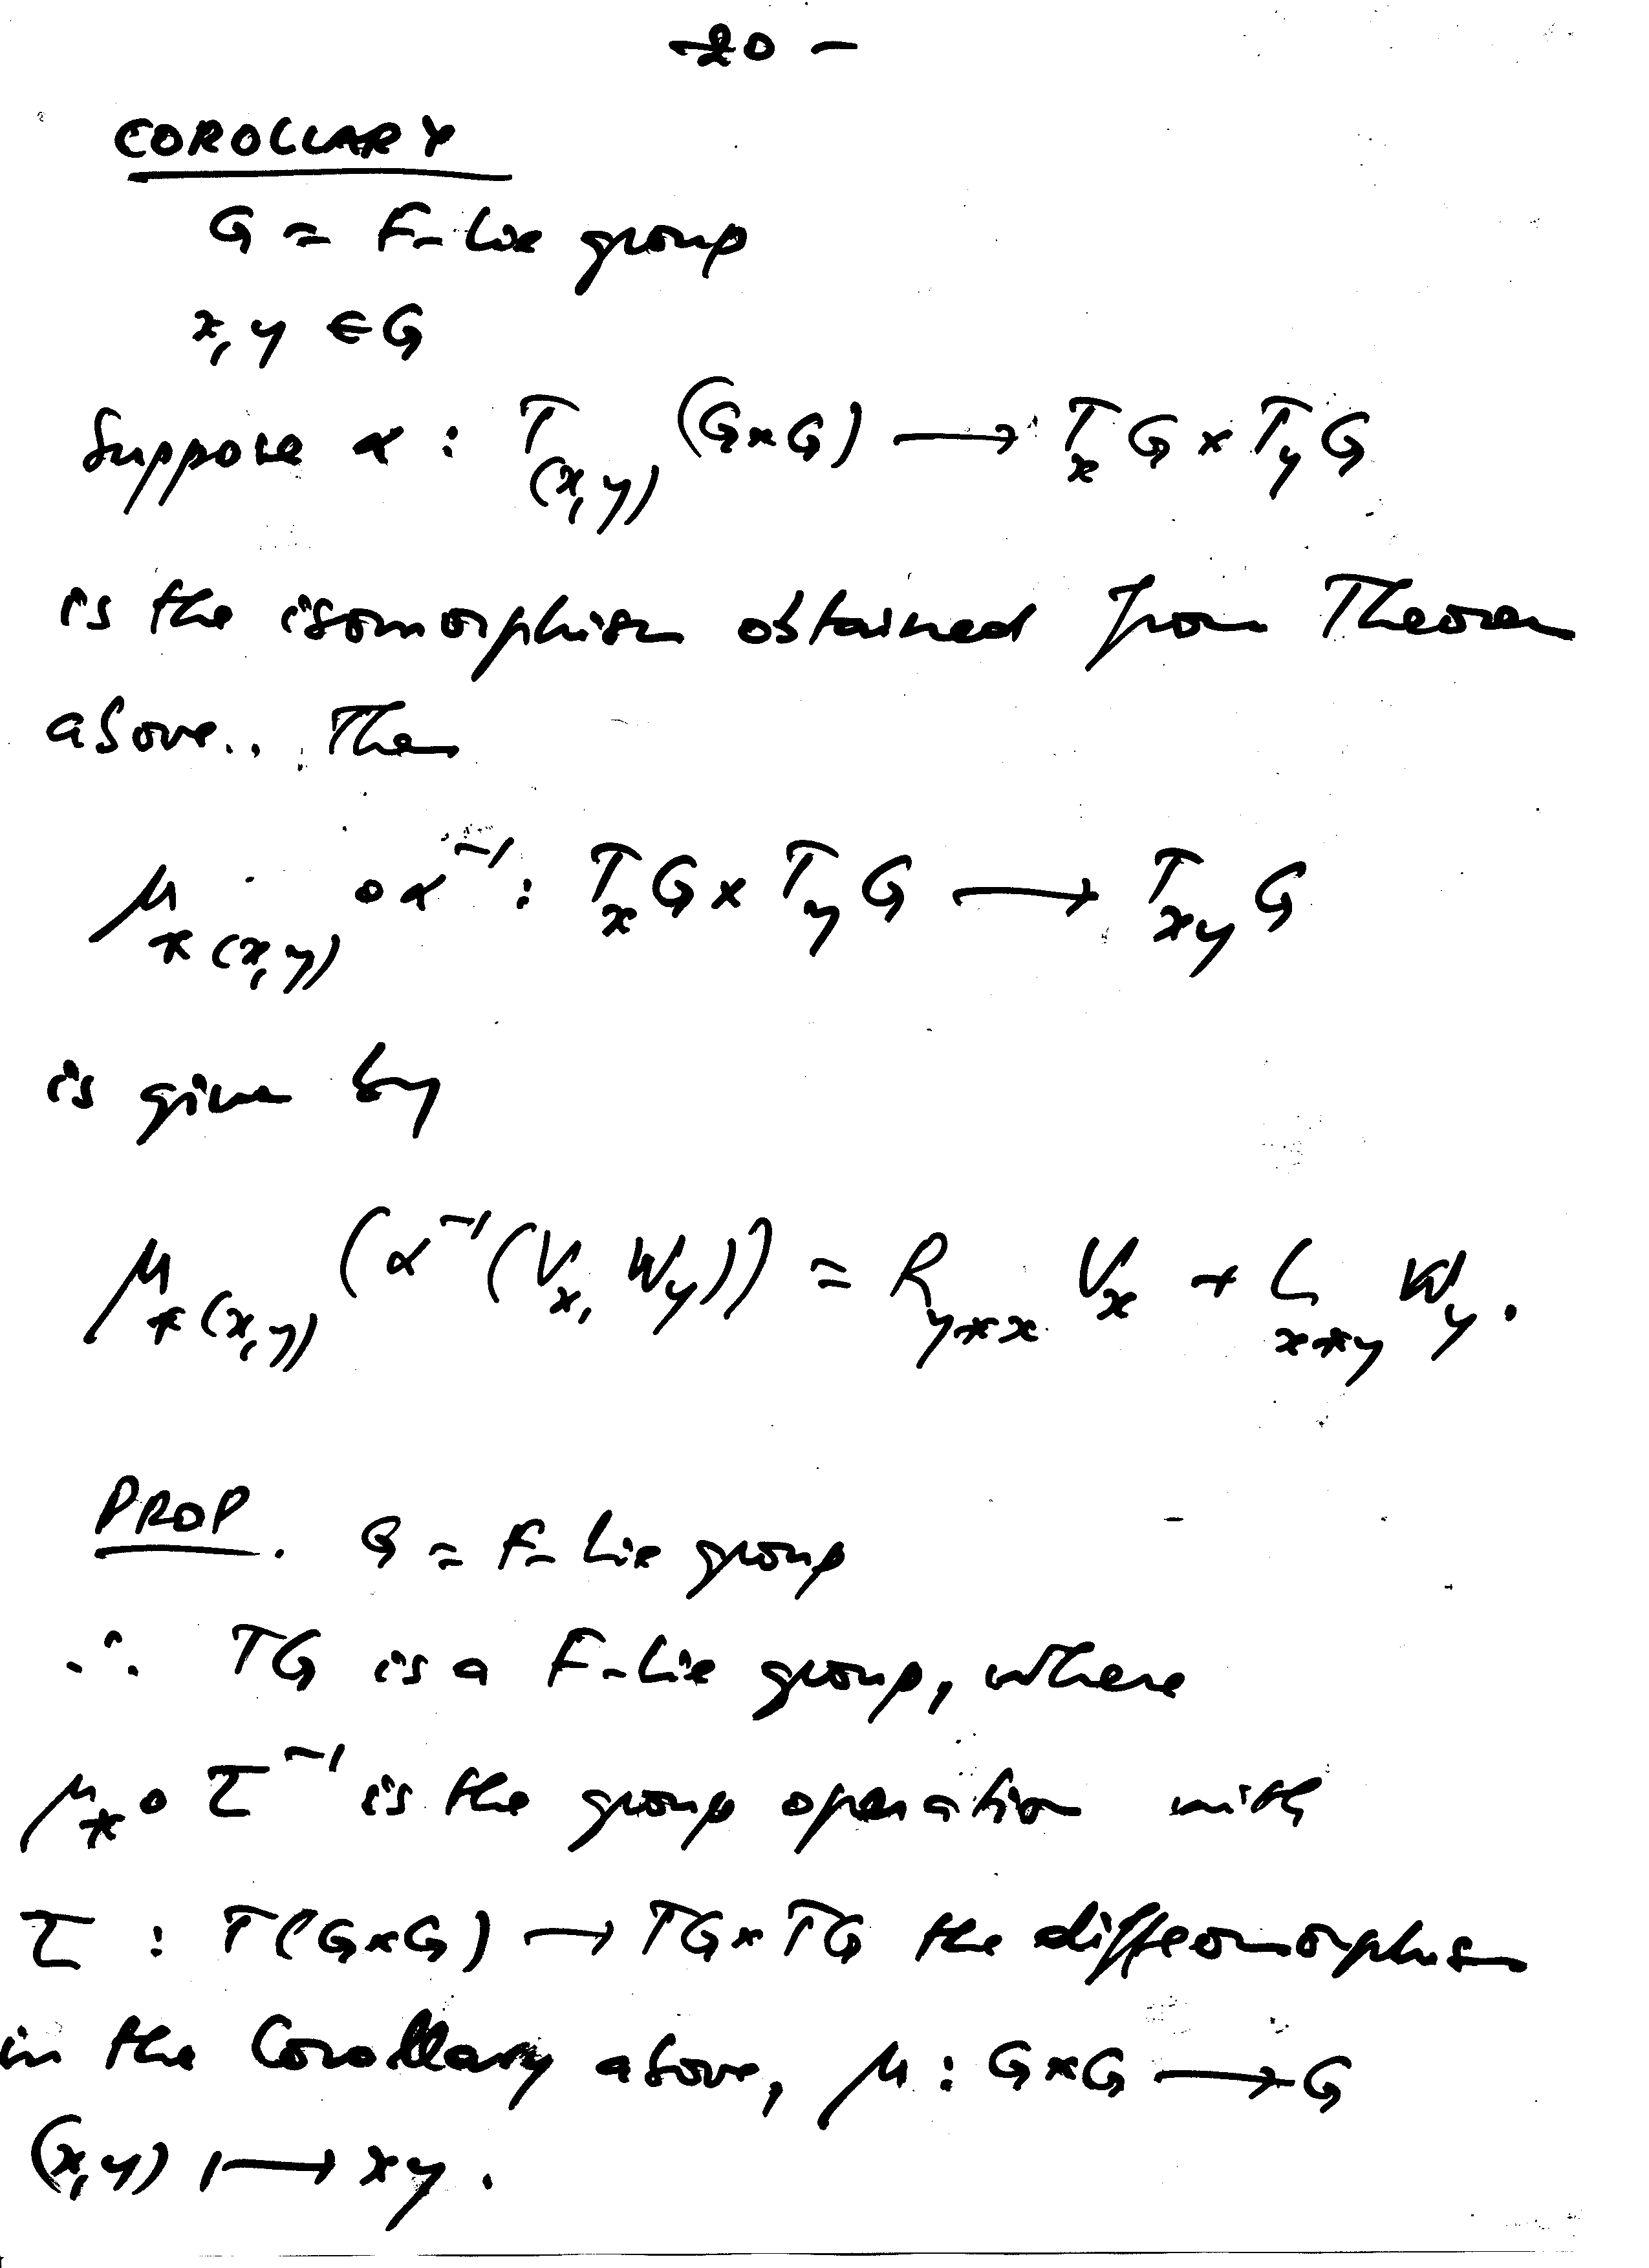 - 20 -
COROLLARY
G = F-Lie group
x, y ∈ G
Suppose α : T_(x,y) (G×G) → T_x G × T_y G
is the isomorphism obtained from Theorem
above.. Then
μ_*(x,y) ∘ α^-1 : T_x G × T_y G → T_xy G
is given by
μ_*(x,y) (α^-1 (V_x, W_y)) = R_y*x V_x + L_x*y W_y .
PROP. G = F-Lie group
∴ TG is a F-Lie group, where
μ_* ∘ τ^-1 is the group operation with
τ : T(G×G) → TG × TG the diffeomorphism
in the Corollary above, μ : G×G → G
(x,y) ↦ xy .